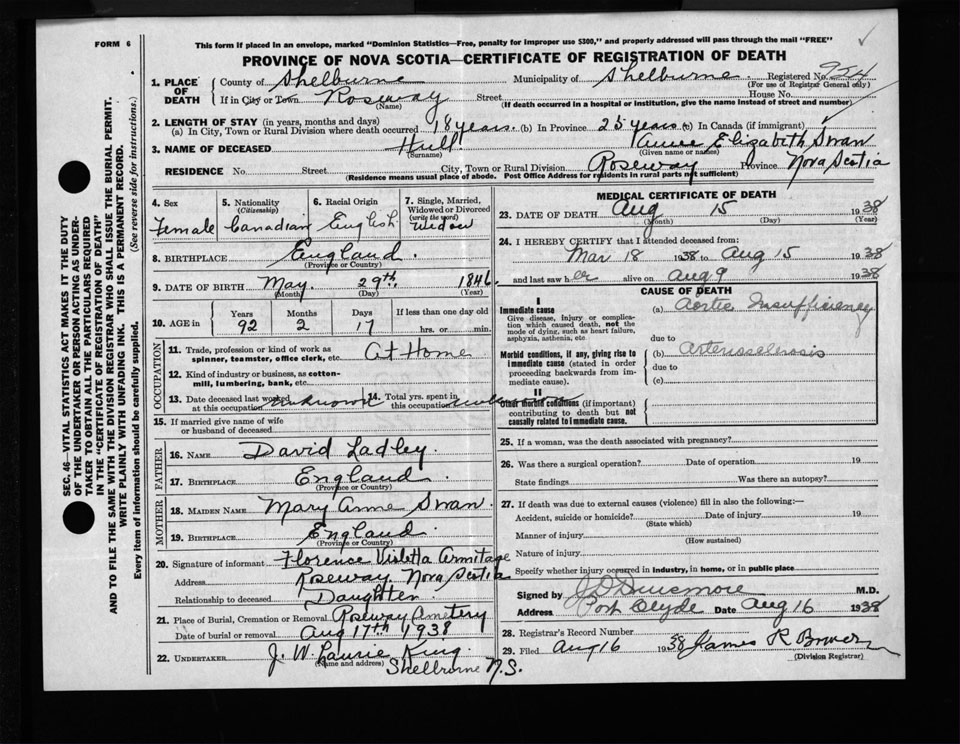 FORM 6
This form if placed in an envelope, marked "Dominion Statistics—Free, penalty for improper use $300," and properly addressed will pass through the mail "FREE"
PROVINCE OF NOVA SCOTIA—CERTIFICATE OF REGISTRATION OF DEATH
1. PLACE OF DEATH County of Shelburne Municipality of Shelburne Registered No. 954
(For use of Registrar General only)
If in City or Town Roseway Street House No.
(Name) (If death occurred in a hospital or institution, give the name instead of street and number)
2. LENGTH OF STAY (in years, months and days)
(a) In City, Town or Rural Division where death occurred 18 years. (b) In Province 25 years (c) In Canada (if immigrant)
3. NAME OF DECEASED Hull Annie Elizabeth Swan
(Surname) (Given name or names)
RESIDENCE No. Street City, Town or Rural Division Roseway Province Nova Scotia
(Residence means usual place of abode. Post Office Address for residents in rural parts not sufficient)
4. Sex 5. Nationality 6. Racial Origin 7. Single, Married, Widowed or Divorced
(Citizenship) (write the word)
Female Canadian English Widow
8. BIRTHPLACE England.
(Province or Country)
9. DATE OF BIRTH May. 29th. 1846.
(Month) (Day) (Year)
10. AGE in Years Months Days If less than one day old
92 2 17 hrs. or min.
OCCUPATION
11. Trade, profession or kind of work as spinner, teamster, office clerk, etc. At Home
12. Kind of industry or business, as cotton-mill, lumbering, bank, etc.
13. Date deceased last worked at this occupation unknown 14. Total yrs. spent in this occupation
15. If married give name of wife or husband of deceased
FATHER
16. NAME David Ladley.
17. BIRTHPLACE England
(Province or Country)
MOTHER
18. MAIDEN NAME Mary Anne Swan.
19. BIRTHPLACE England.
(Province or Country)
20. Signature of informant Florence Violetta Armitage
Address Roseway. Nova Scotia
Relationship to deceased Daughter.
21. Place of Burial, Cremation or Removal Roseway Cemetery
Date of burial or removal Aug 17th 1938
22. UNDERTAKER J. W. Laurie King.
(Name and address) Shelburne N.S.
MEDICAL CERTIFICATE OF DEATH
23. DATE OF DEATH Aug 15 1938
(Month) (Day) (Year)
24. I HEREBY CERTIFY that I attended deceased from:
Mar 18 1938 to Aug 15 1938
and last saw her alive on Aug 9 1938
CAUSE OF DEATH
I
Immediate cause (a) Aortic Insufficiency
Give disease, injury or complication which caused death, not the mode of dying, such as heart failure, asphyxia, asthenia, etc
due to
Morbid conditions, if any, giving rise to immediate cause (stated in order proceeding backwards from immediate cause).
(b) arteriosclerosis
due to
(c)
II
Other morbid conditions (if important) contributing to death but not causally related to immediate cause.
25. If a woman, was the death associated with pregnancy?
26. Was there a surgical operation? Date of operation 19
State findings Was there an autopsy?
27. If death was due to external causes (violence) fill in also the following:—
Accident, suicide or homicide? Date of injury 19
(State which)
Manner of injury
(How sustained)
Nature of injury
Specify whether injury occurred in industry, in home, or in public place
Signed by M.D.
Address Port Clyde Date Aug 16 1938
28. Registrar's Record Number
29. Filed Aug 16 1938 James R Bower
(Division Registrar)
SEC. 46—VITAL STATISTICS ACT MAKES IT THE DUTY
OF THE UNDERTAKER OR PERSON ACTING AS UNDER-
TAKER TO OBTAIN ALL THE PARTICULARS REQUIRED
IN THE "CERTIFICATE OF REGISTRATION OF DEATH"
AND TO FILE THE SAME WITH THE DIVISION REGISTRAR WHO SHALL ISSUE THE BURIAL PERMIT.
WRITE PLAINLY WITH UNFADING INK. THIS IS A PERMANENT RECORD.
Every item of information should be carefully supplied. (See reverse side for instructions.)